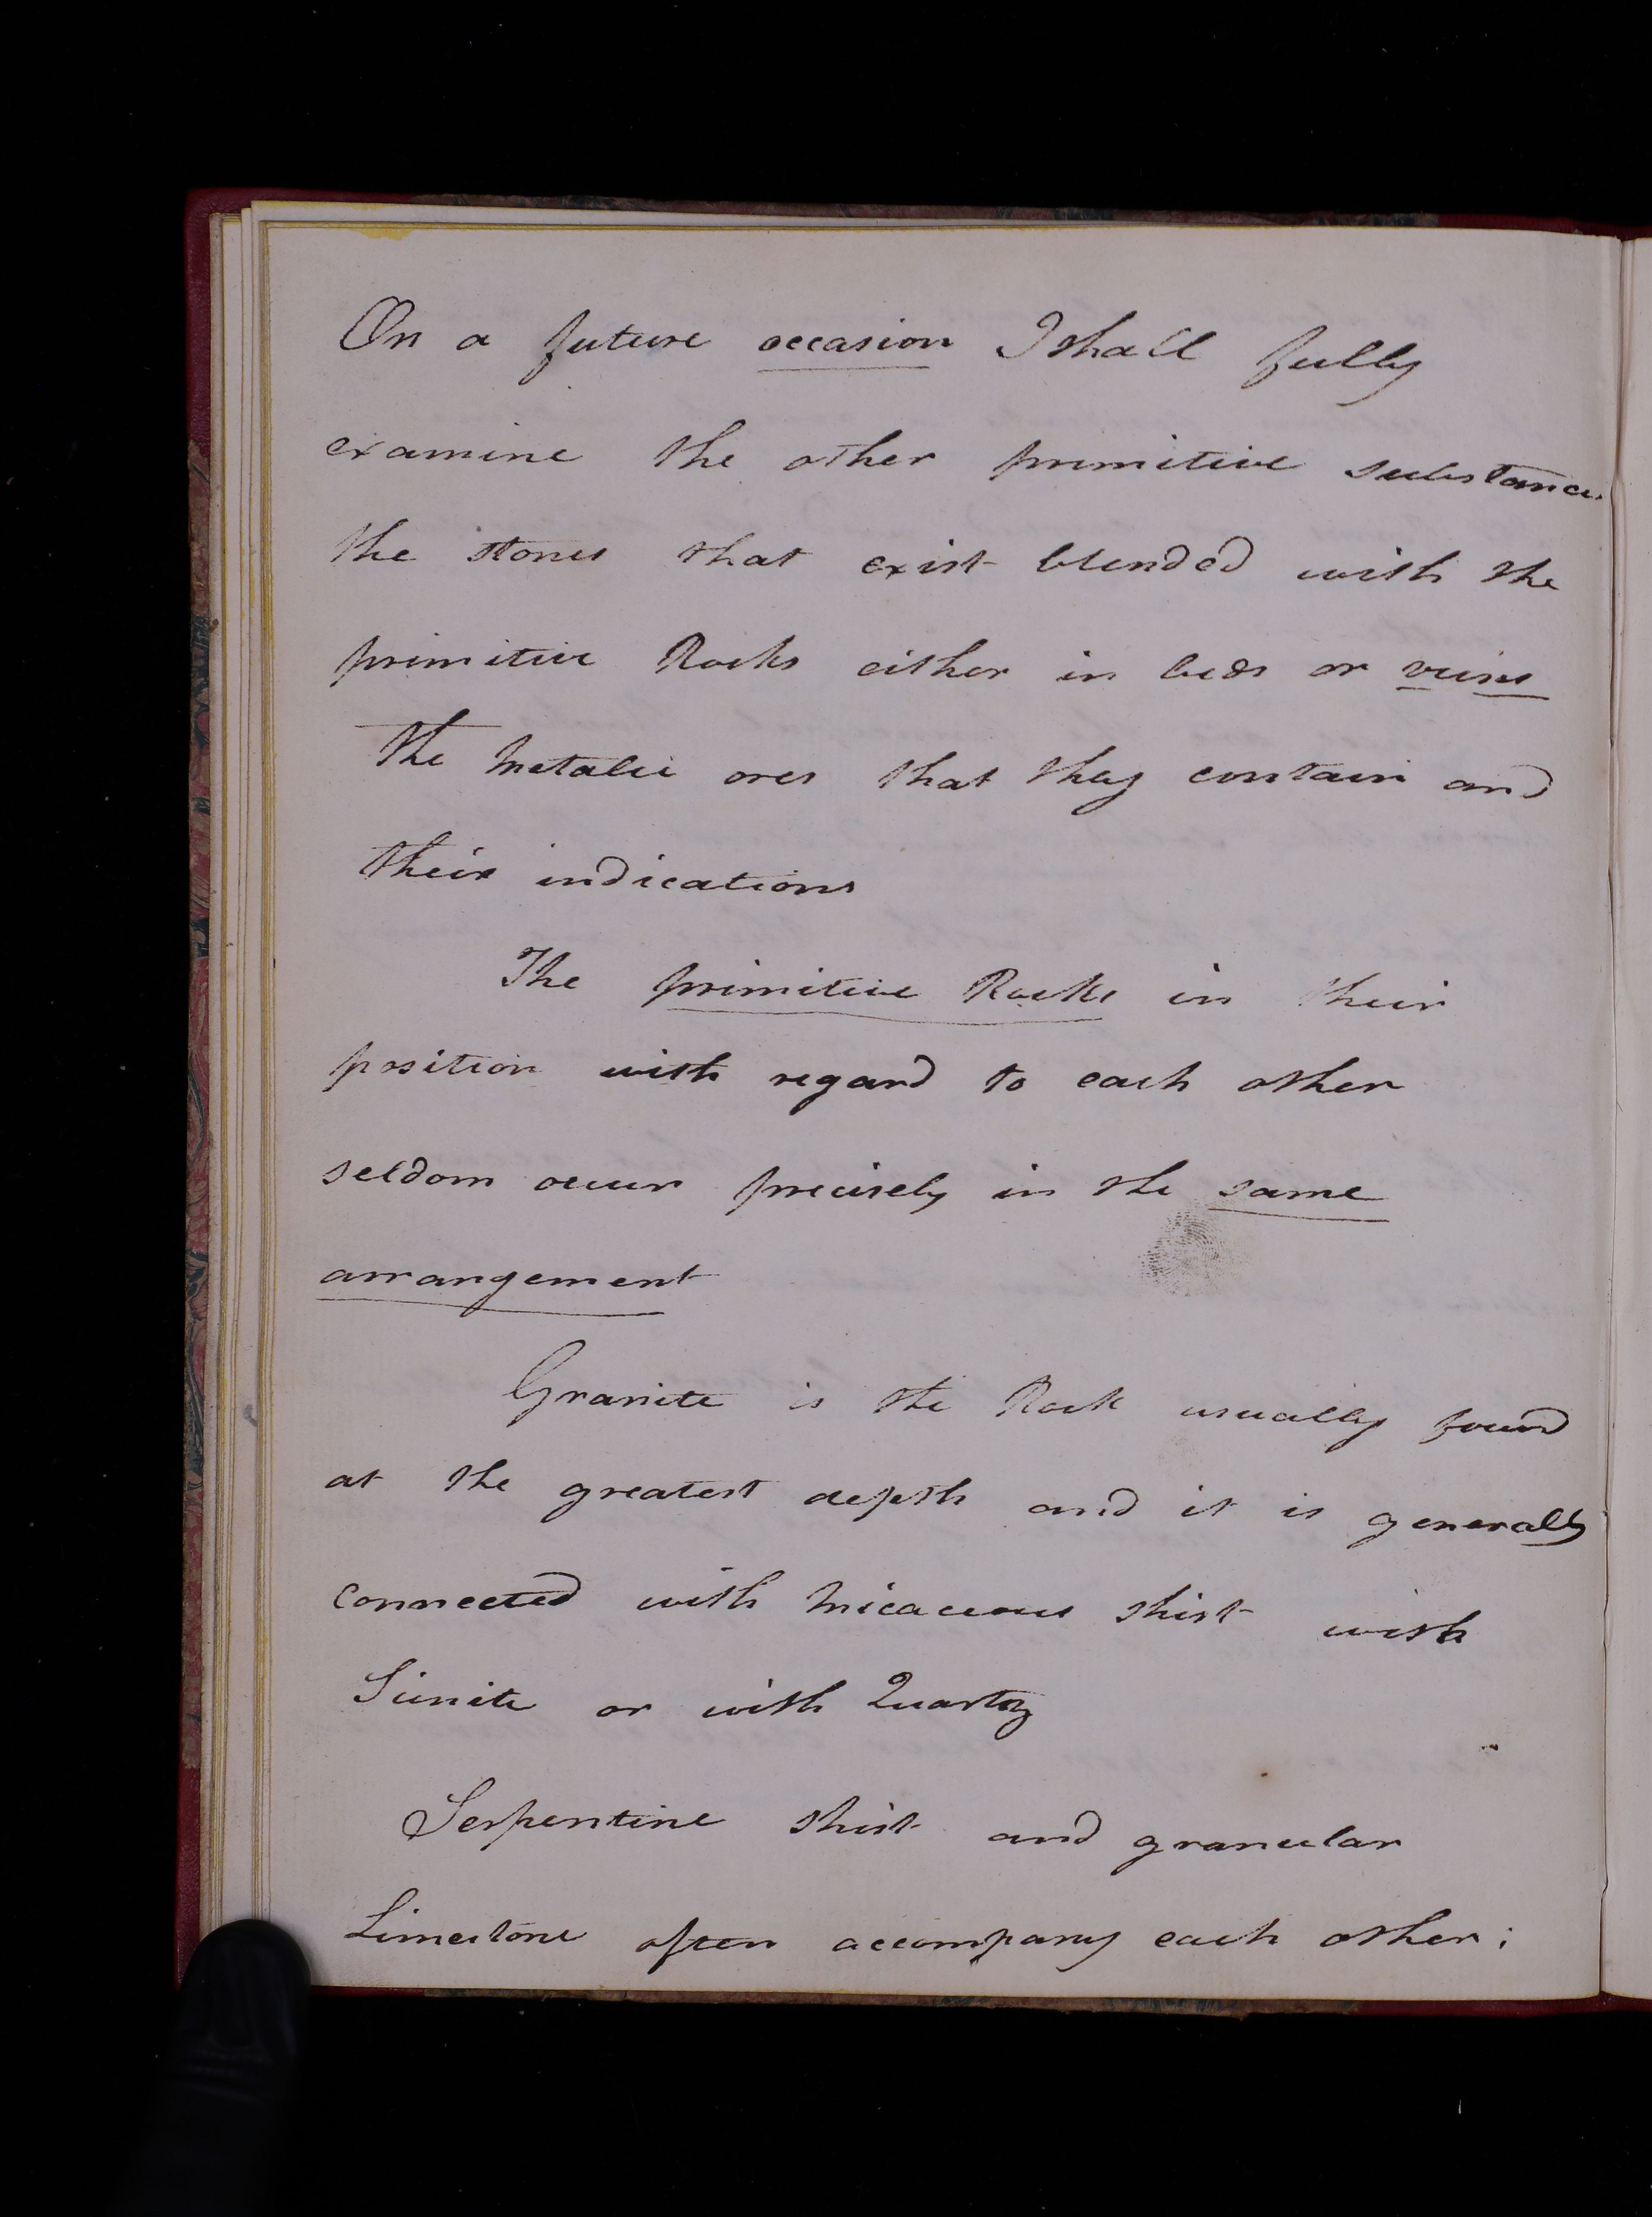 On a future occasion I shall fully
examine the other primitive substances
the stones that exist blended with the
primitive Rocks either in beds or veins
The metalic ores that they contain and
their indications
The primitive Rocks in their
position with regard to each other
seldom occur precisely in the same
arrangement
Granite is the Rock usually found
at the greatest depth and it is generally
connected with micaceous shist with
Sienite or with Quartz
Serpentine shist and granular
Limestone often accompany each other;